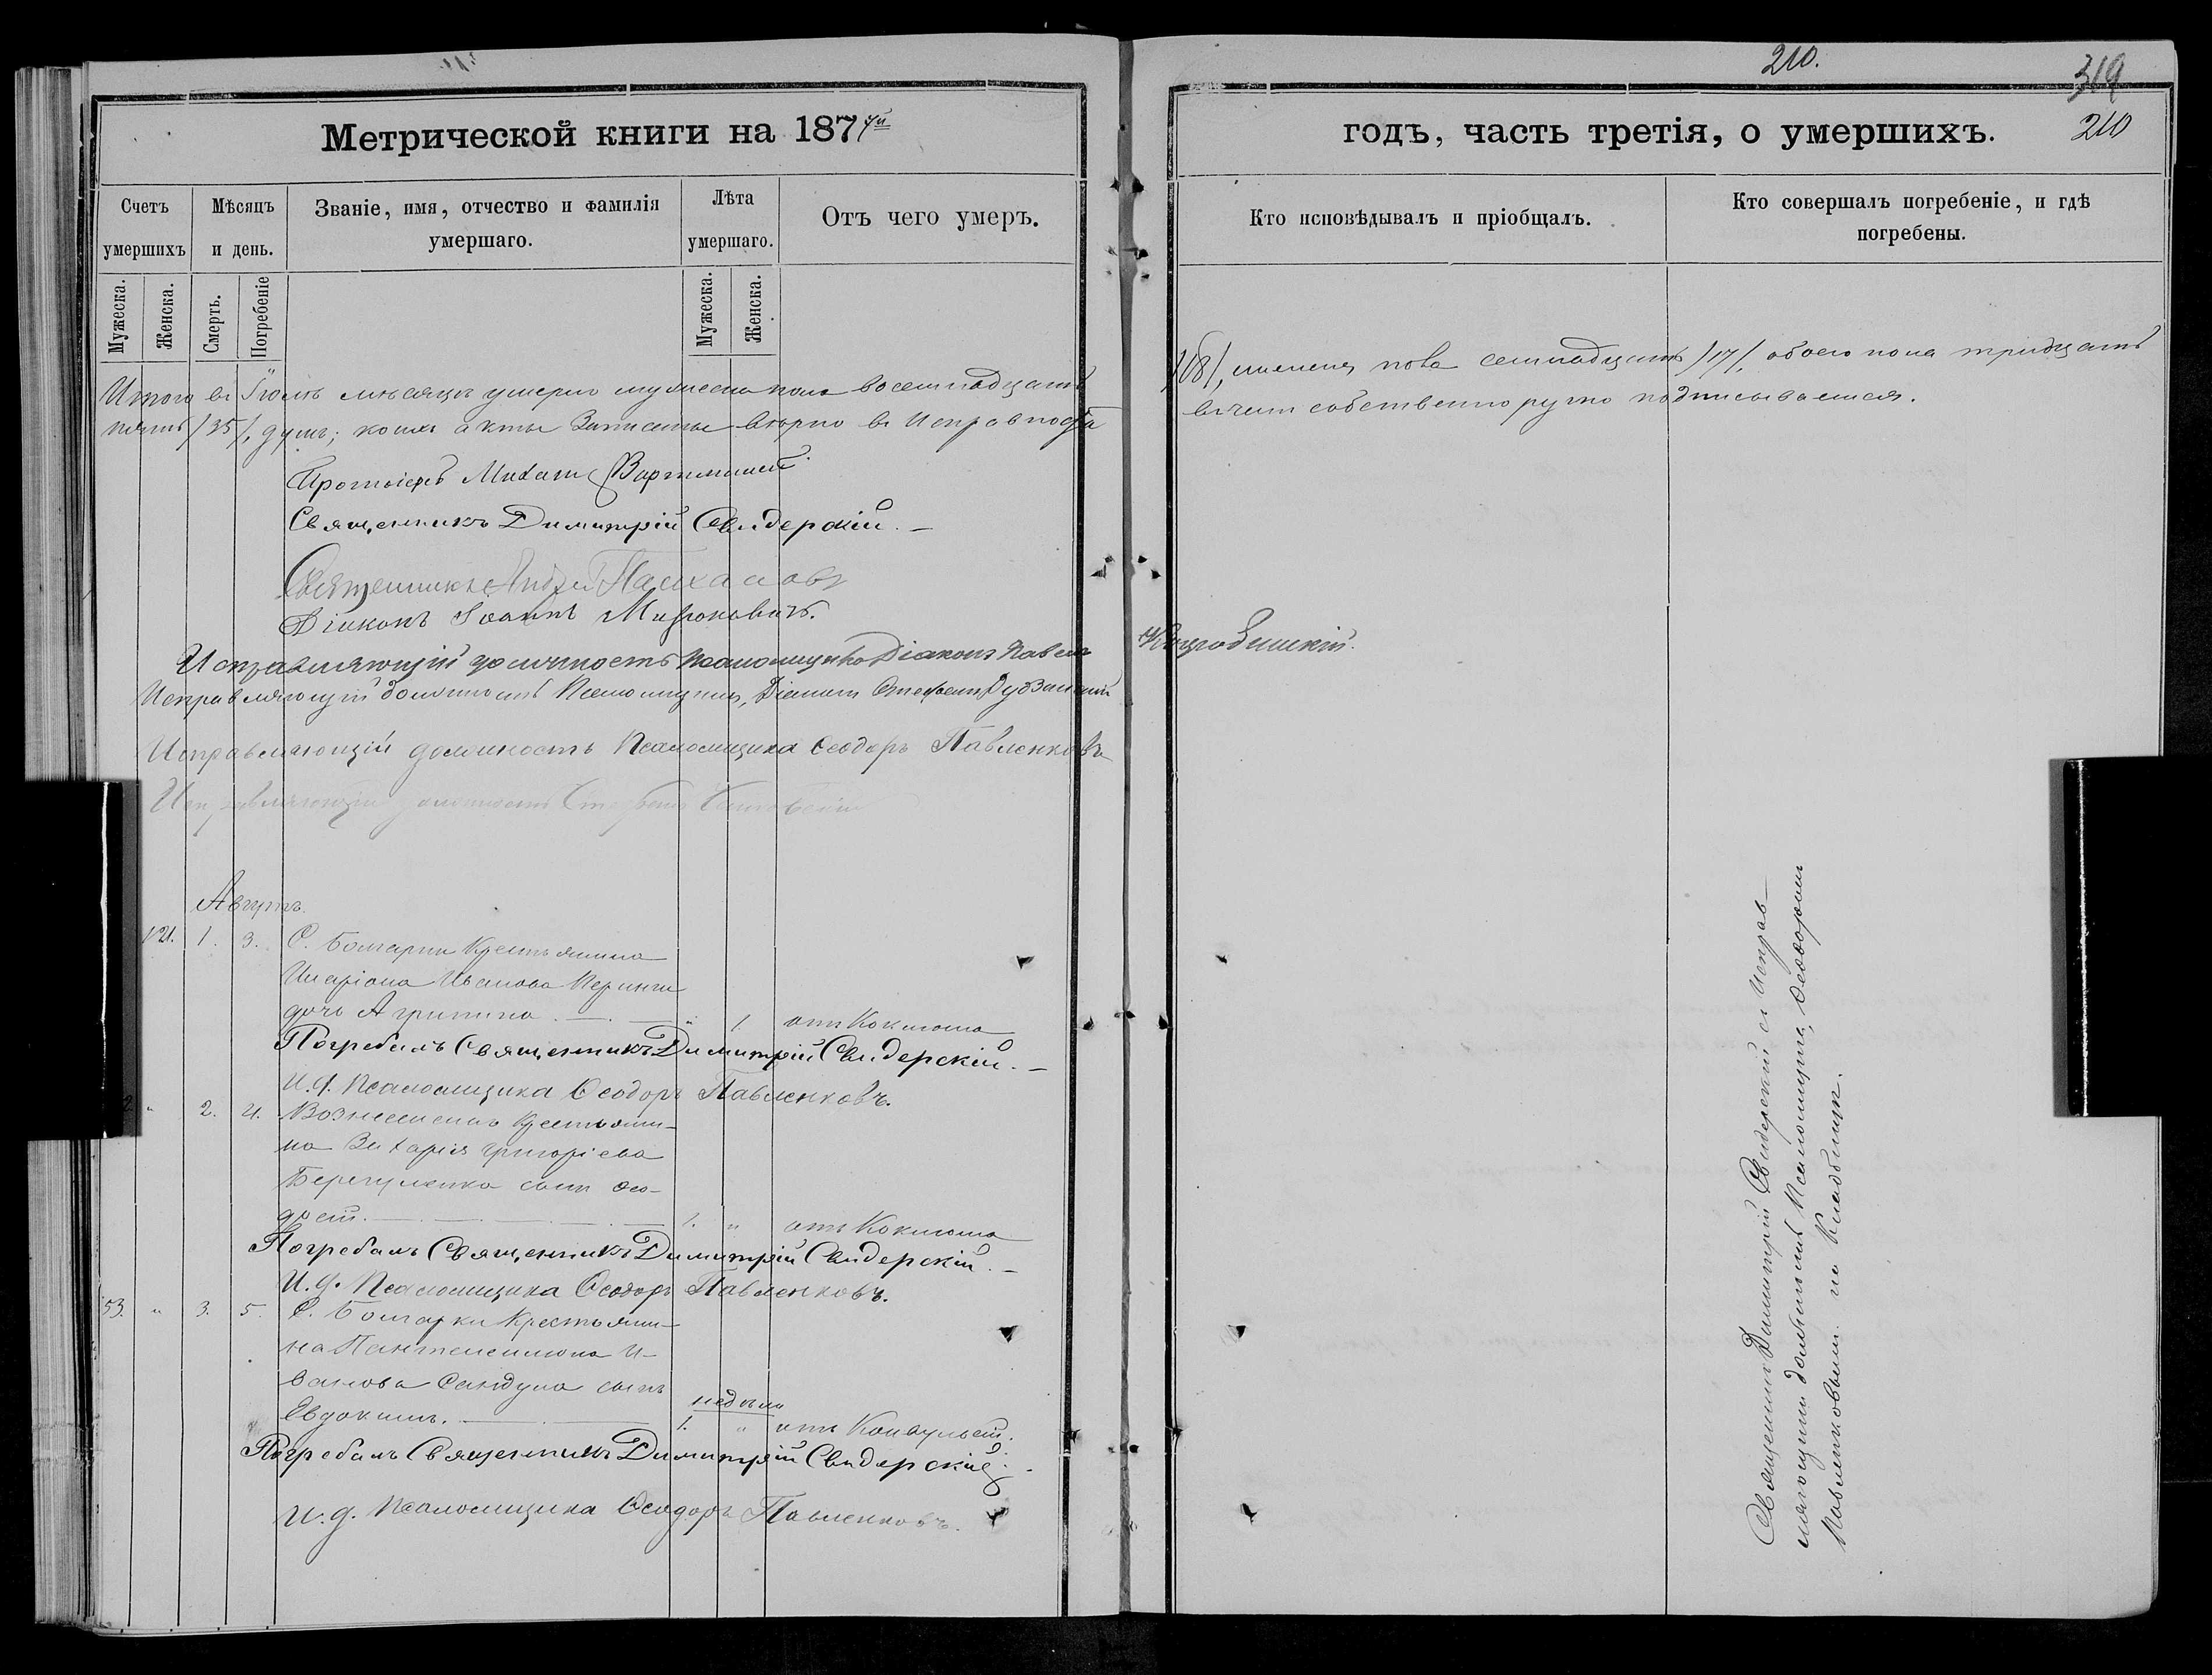 210.
319
Метрической книги на 1877й
годъ, часть третія, о умершихъ.
210
Счетъ умершихъ
Мѣсяцъ и день.
Званіе, имя, отчество и фамилія умершаго.
Лѣта умершаго.
Отъ чего умеръ.
Кто исповѣдывалъ и пріобщалъ.
Кто совершалъ погребеніе, и гдѣ погребены.
Мужеска.
Женска.
Смерть.
Погребеніе
Мужеска.
Женска.
Итого въ Іюлѣ мѣсяцѣ умерло мужеска пола восемнадцать /18/, женска пола семнадцать /17/, обоего пола тридцать
пять /35/, душъ; коихъ акты записаны вѣрно въ чемъ собственноручно подписываемся.
Протоіерей Михаилъ
Священникъ Димитрій Свидерскій. —
Священникъ Андрей
Діаконъ Іоаннъ Мироновичъ.
Исправляющій должность Псаломщика Діаконъ Павелъ
Исправляющій должность Псаломщика, Діаконъ Стефанъ
Исправляющій должность Псаломщика Ѳеодоръ Павленковъ
Исправляющій должность Стефанъ
Августъ.
121. 1. 3. С. Болгарки Крестьянина
Иларіона Иванова
дочь Агрипина. — " 1. отъ Коклюша
Погребалъ Священникъ Димитрій Свидерскій. —
И. д. Псаломщика Ѳеодоръ Павленковъ.
2. " 2. 4. Вознесенска Крестьяни-
на Захарія Григоріева
сынъ Ѳео-
досій. — 1. " отъ Коклюша
Погребалъ Священникъ Димитрій Свидерскій. —
И. д. Псаломщика Ѳеодоръ Павленковъ.
53. " 3. 5. С. Болгарки Крестьяни-
на Пантелеимона И-
ванова Сандула сынъ
недѣли
Евдокимъ. — 1. " отъ Конвульсій.
Погребалъ Священникъ Димитрій Свидерскій. -
И. д. Псаломщика Ѳеодоръ Павленковъ.
Священникъ Димитрій Свидерскій съ Исправ-
ляющимъ должность Псаломщика, Ѳеодоромъ
Павленковымъ. на Кладбищѣ.